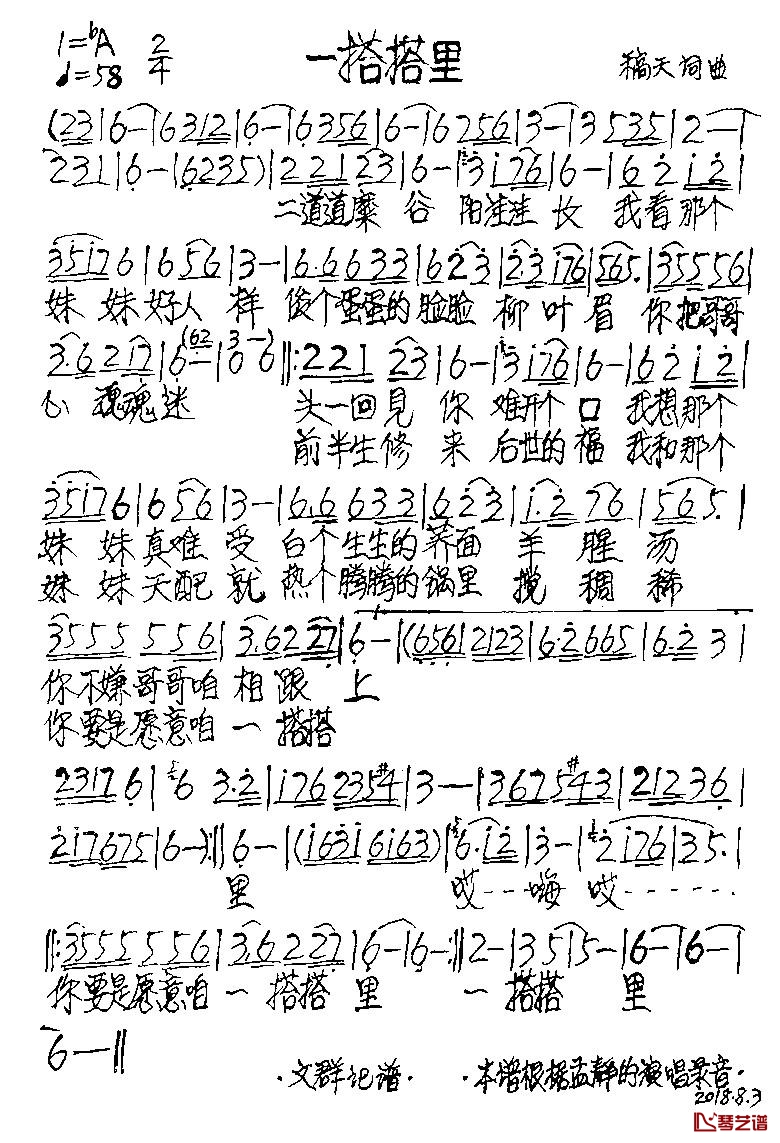 1=bA 2/4
♩=58
一搭搭里
稿天词曲
(2 3 | 6 — | 6 3 1 2 | 6 — | 6 3 5 6 | 6 — | 6 7 5 6 | 3 — | 3 5 3 5 | 2 — |
2 3 1 | 6 — | 6 2 3 5) | 2 2 1 2 3 | 6 — | 3 i 7 6 | 6 — | 6 2 i 2 |
二道道糜 谷 阳洼洼 长 我看那个
3 5 i 7 6 | 6 5 6 | 3 — | 6 · 6 6 3 3 | 6 2 3 | 2 · 3 i 7 6 | 5 6 5 · | 3 5 5 5 6 |
妹 妹好人 样 俊个蛋蛋的脸脸 柳叶眉 你把哥哥
3 · 6 2 1 7 | 6 — | 0 6 ‖: 2 2 1 2 3 | 6 — | 3 i 7 6 | 6 — | 6 2 i 2 |
心 魂魂迷 头一回见 你 难开个 口 我想那个
前半生修 来 后世的福 我和那个
3 5 i 7 6 | 6 5 6 | 3 — | 6 · 6 6 3 3 | 6 2 3 | i · 2 7 6 | 5 6 5 · |
妹 妹真难 受 白个生生的荞面 羊 腥 汤
妹 妹天配 就 热个腾腾的锅里 搅 稠 稀
3 5 5 5 5 5 6 | 3 · 6 2 2 7 | 6 — | (6 5 6 | 2 1 2 3 | 6 · 2 6 6 5 | 6 · 2 3 |
你不嫌哥哥咱 相 跟 上
你要是愿意咱 一 搭搭
2 3 1 7 6 | 6 3 · 2 | i 7 6 2 3 5 #4 | 3 — | 3 6 7 5 #4 3 | 2 1 2 3 6 |
2 i 7 6 7 5 | 6 —) :‖ 6 — | (i 6 3 i 6 i 6 3) | 6 · i 2 | 3 — | 2 i 7 6 | 3 5 · |
里 哎---嗨 哎------
‖: 3 5 5 5 5 5 6 | 3 · 6 2 2 7 | 6 — | 6 — :‖ 2 — | 3 5 | 5 — | 6 — | 6 — |
你要是愿意咱 一 搭搭 里 一 搭搭 里
6 — ‖
·文群记谱· ·本谱根据孟静的演唱录音·
2018.8.3
琴艺谱